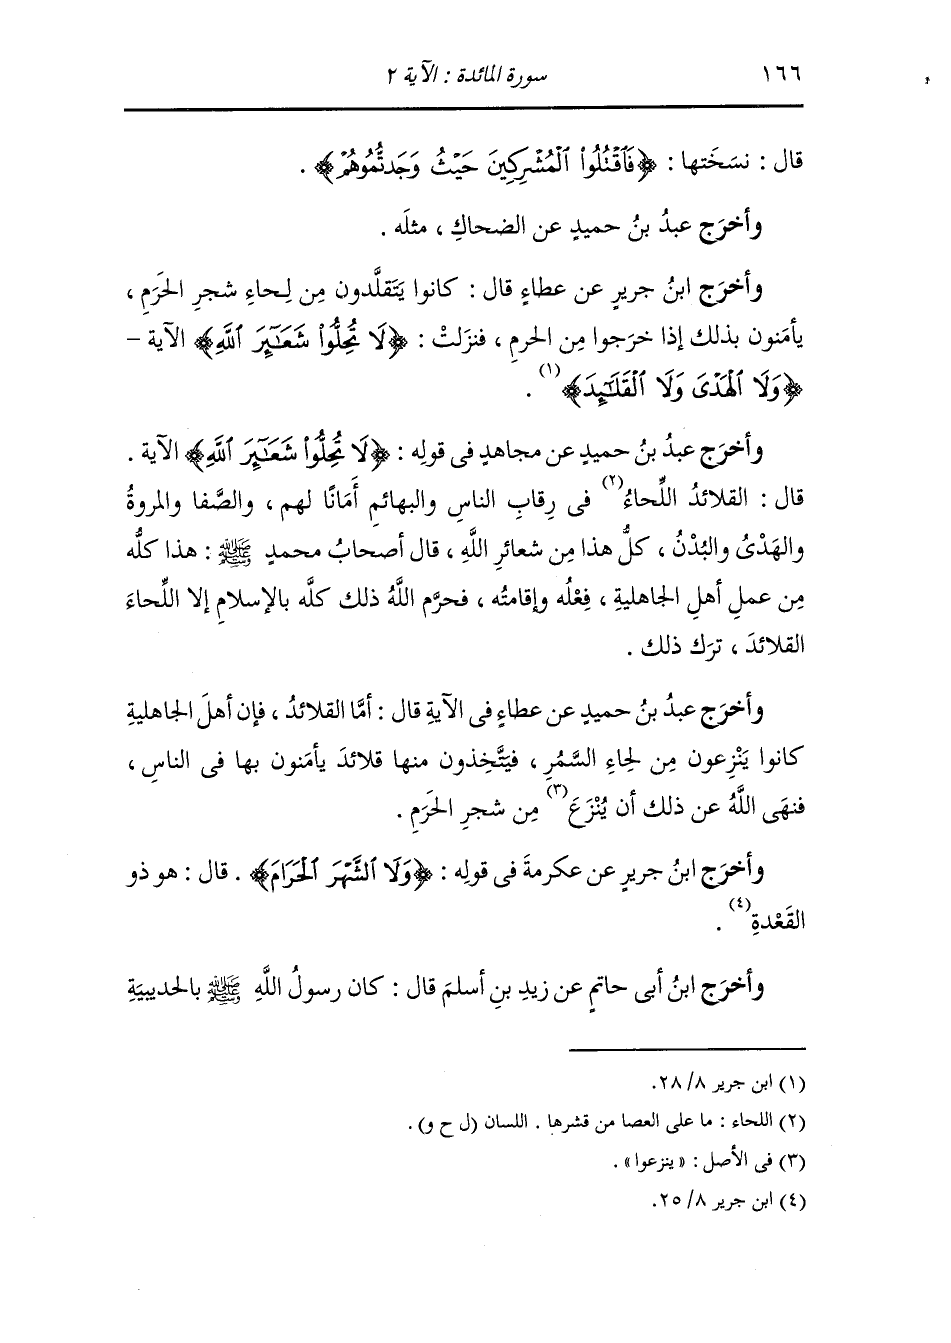 ١٦٦ سورة المائدة : الآية ٢
قال : نسَخَتها : ﴿فَٱقۡتُلُوا۟ ٱلۡمُشۡرِكِينَ حَيۡثُ وَجَدتُّمُوهُمۡ﴾ .
وأخرَج عبدُ بنُ حميدٍ عن الضحاكِ ، مثلَه .
وأخرَج ابنُ جريرٍ عن عطاءٍ قال : كانوا يَتَقلَّدون مِن لِحاءِ شجرِ الحَرَمِ ،
يأمَنون بذلك إذا خرَجوا مِن الحرمِ ، فنزَلتْ : ﴿لَا تُحِلُّوا۟ شَعَـٰٓئِرَ ٱللَّهِ﴾ الآية –
﴿وَلَا ٱلۡهَدۡىَ وَلَا ٱلۡقَلَـٰٓئِدَ﴾ (١) .
وأخرَج عبدُ بنُ حميدٍ عن مجاهدٍ فى قولِه : ﴿لَا تُحِلُّوا۟ شَعَـٰٓئِرَ ٱللَّهِ﴾ الآية .
قال : القلائدُ اللِّحاءُ(٢) فى رِقابِ الناسِ والبهائمِ أَمَانًا لهم ، والصَّفا والمروةُ
والهَدْىُ والبُدْنُ ، كلُّ هذا مِن شعائرِ اللَّهِ ، قال أصحابُ محمدٍ ﷺ : هذا كلُّه
مِن عملِ أهلِ الجاهليةِ ، فِعْلُه وإقامتُه ، فحرَّم اللَّهُ ذلك كلَّه بالإسلامِ إلا اللِّحاءَ
القلائدَ ، ترَك ذلك .
وأخرَج عبدُ بنُ حميدٍ عن عطاءٍ فى الآيةِ قال : أمَّا القلائدُ ، فإن أهلَ الجاهليةِ
كانوا يَنْزِعون مِن لِحاءِ السَّمُرِ ، فيتَّخِذون منها قلائدَ يأمَنون بها فى الناسِ ،
فنهَى اللَّهُ عن ذلك أن يُنْزَعَ(٣) مِن شجرِ الحَرَمِ .
وأخرَج ابنُ جريرٍ عن عكرمةَ فى قولِه : ﴿وَلَا ٱلشَّهۡرَ ٱلۡحَرَامَ﴾ . قال : هو ذو
القَعْدةِ(٤) .
وأخرَج ابنُ أبى حاتمٍ عن زيدِ بنِ أسلمَ قال : كان رسولُ اللَّهِ ﷺ بالحديبيَةِ
(١) ابن جرير ٨/ ٢٨.
(٢) اللحاء : ما على العصا من قشرها . اللسان (ل ح و) .
(٣) فى الأصل : « ينزعوا » .
(٤) ابن جرير ٨/ ٢٥.